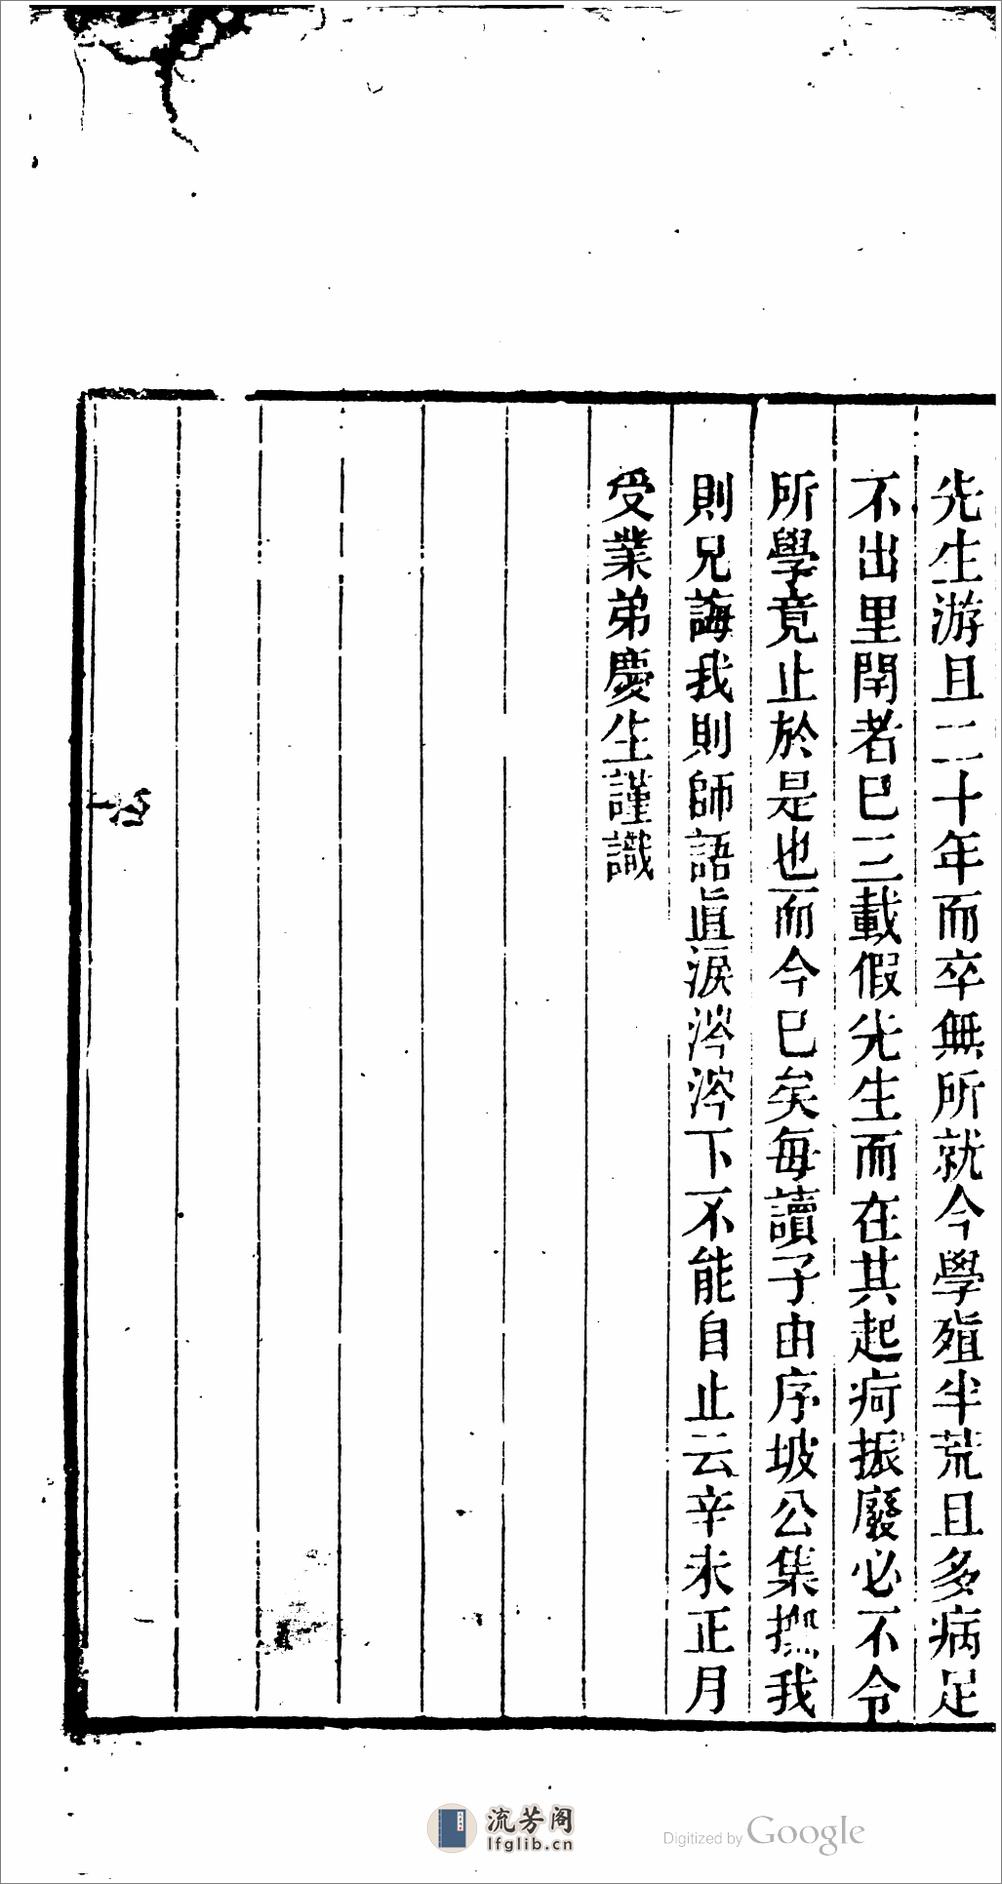 先生游且二十年而卒無所就今學殖半荒且多病足
不出里閈者已三載假先生而在其起痾振廢必不令
所學竟止於是也而今已矣每讀子由序坡公集撫我
則兄誨我則師語眞淚涔涔下不能自止云辛未正月
受業弟慶生謹識
流芳阁
lfglib.cn
Digitized by Google